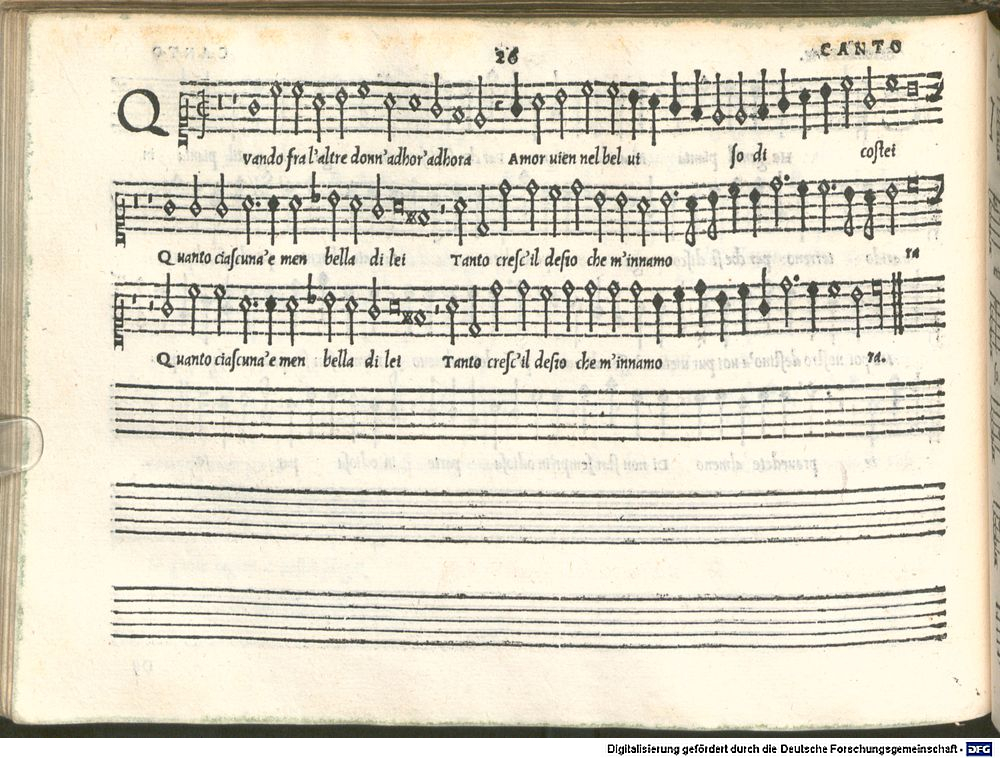 26 CANTO
Q
vando fra l'altre donn'adhor'adhora Amor uien nel bel ui so di costei
Quanto ciascuna'e men bella di lei Tanto cresc'il desio che m'innamo ra
Quanto ciascuna'e men bella di lei Tanto cresc'il desio che m'innamo ra.
Digitalisierung gefördert durch die Deutsche Forschungsgemeinschaft - DFG